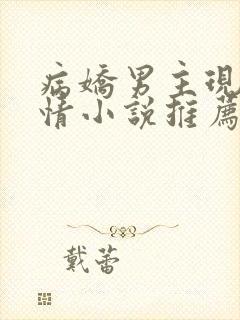 病嬌男主現
情小說推薦
戴蕾